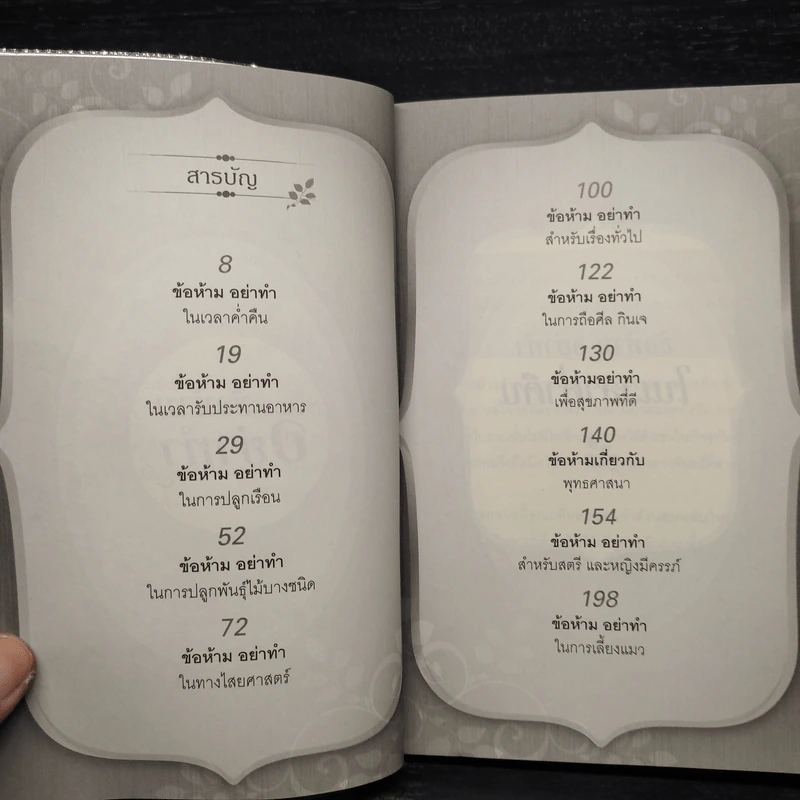 สารบัญ
8
ข้อห้าม อย่าทำ
ในเวลาค่ำคืน
19
ข้อห้าม อย่าทำ
ในเวลารับประทานอาหาร
29
ข้อห้าม อย่าทำ
ในการปลูกเรือน
52
ข้อห้าม อย่าทำ
ในการปลูกพันธุ์ไม้บางชนิด
72
ข้อห้าม อย่าทำ
ในทางไสยศาสตร์
100
ข้อห้าม อย่าทำ
สำหรับเรื่องทั่วไป
122
ข้อห้าม อย่าทำ
ในการถือศีล กินเจ
130
ข้อห้ามอย่าทำ
เพื่อสุขภาพที่ดี
140
ข้อห้ามเกี่ยวกับ
พุทธศาสนา
154
ข้อห้าม อย่าทำ
สำหรับสตรี และหญิงมีครรภ์
198
ข้อห้าม อย่าทำ
ในการเลี้ยงแมว